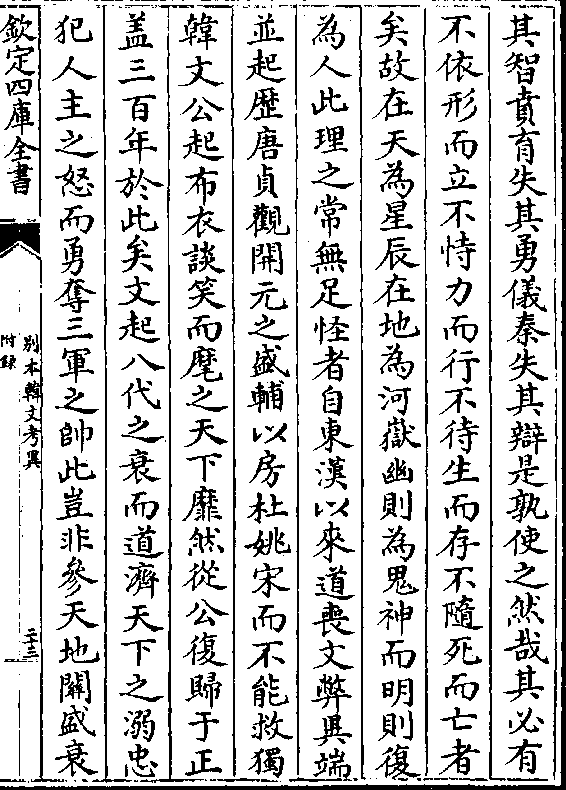 其智賁育失其勇儀秦失其辯是孰使之然哉其必有
不依形而立不恃力而行不待生而存不隨死而亡者
矣故在天為星辰在地為河嶽幽則為鬼神而明則復
為人此理之常無足怪者自東漢以來道喪文弊異端
並起歴唐貞觀開元之盛輔以房杜姚宋而不能救獨
韓文公起布衣談笑而麾之天下靡然從公復歸于正
盖三百年於此矣文起八代之衰而道濟天下之溺忠
犯人主之怒而勇奪三軍之帥此豈非參天地關盛衰
欽定四庫全書
別本韓文考異
附錄
二十三